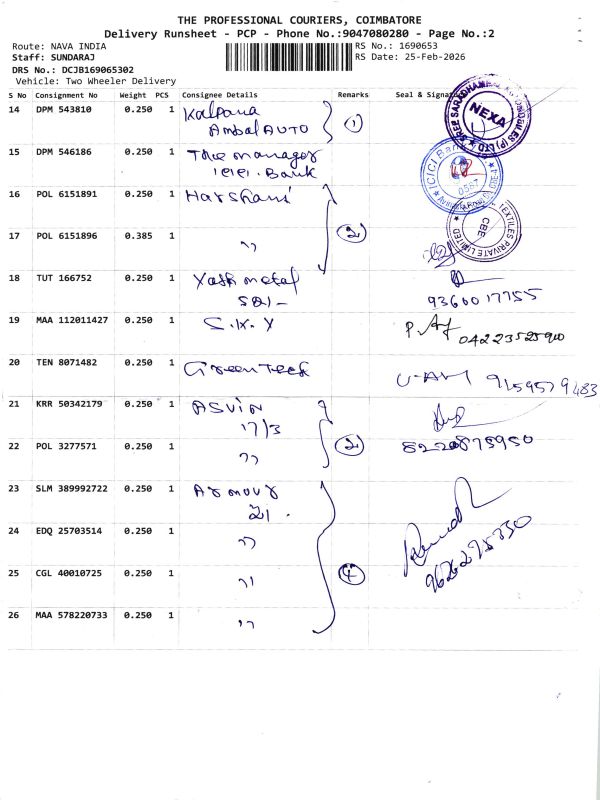 THE PROFESSIONAL COURIERS, COIMBATORE
Delivery Runsheet - PCP - Phone No.:9047080280 - Page No.:2
Route: NAVA INDIA
Staff: SUNDARAJ
DRS No.: DCJB169065302
Vehicle: Two Wheeler Delivery
RS No.: 1690653
RS Date: 25-Feb-2026
S No Consignment No Weight PCS Consignee Details Remarks Seal & Signat
14 DPM 543810 0.250 1 Kalpana
Ambal AUTO 1
NEXA
15 DPM 546186 0.250 1 The manager
ICICI Bank
ICICI Ban
0567
16 POL 6151891 0.250 1 Harshani
2
TEXTILES PRIVATE LIMITED
CBE
17 POL 6151896 0.385 1 "
18 TUT 166752 0.250 1 Yash metal
9360017755
19 MAA 112011427 0.250 1 C.IX.Y
20 TEN 8071482 0.250 1 Green Teck
9159579483
21 KRR 50342179 0.250 1 ASVIN
17/3
2
8220875950
22 POL 3277571 0.250 1 "
23 SLM 389992722 0.250 1 Armour
21.
24 EDQ 25703514 0.250 1 "
25 CGL 40010725 0.250 1 "
4
26 MAA 578220733 0.250 1 "